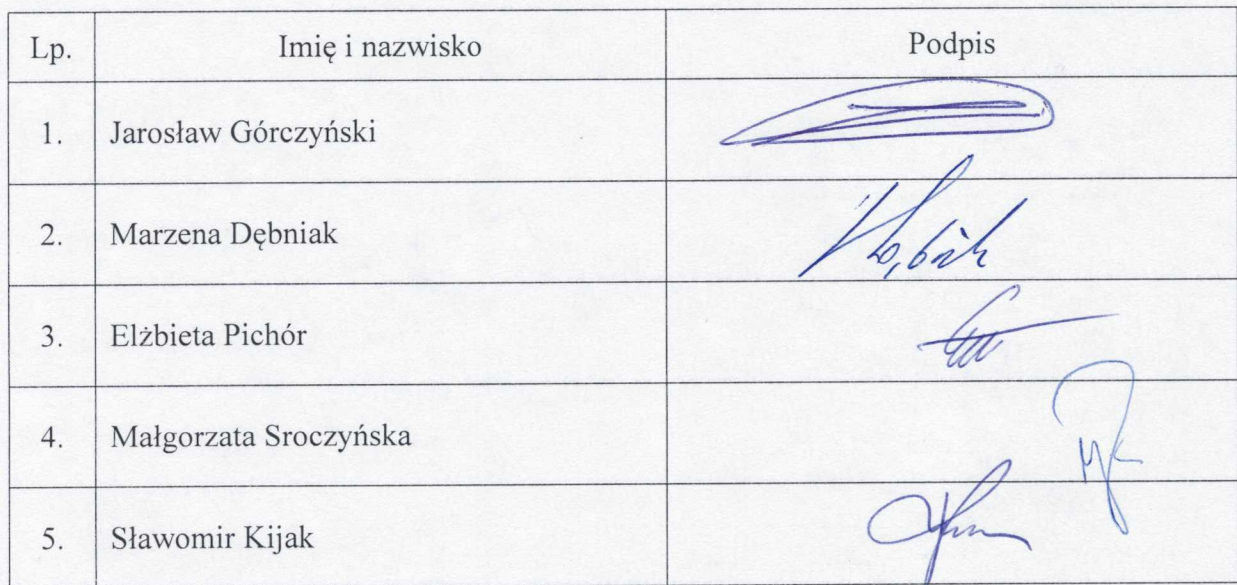 Lp. Imię i nazwisko Podpis
1. Jarosław Górczyński
2. Marzena Dębniak
3. Elżbieta Pichór
4. Małgorzata Sroczyńska
5. Sławomir Kijak